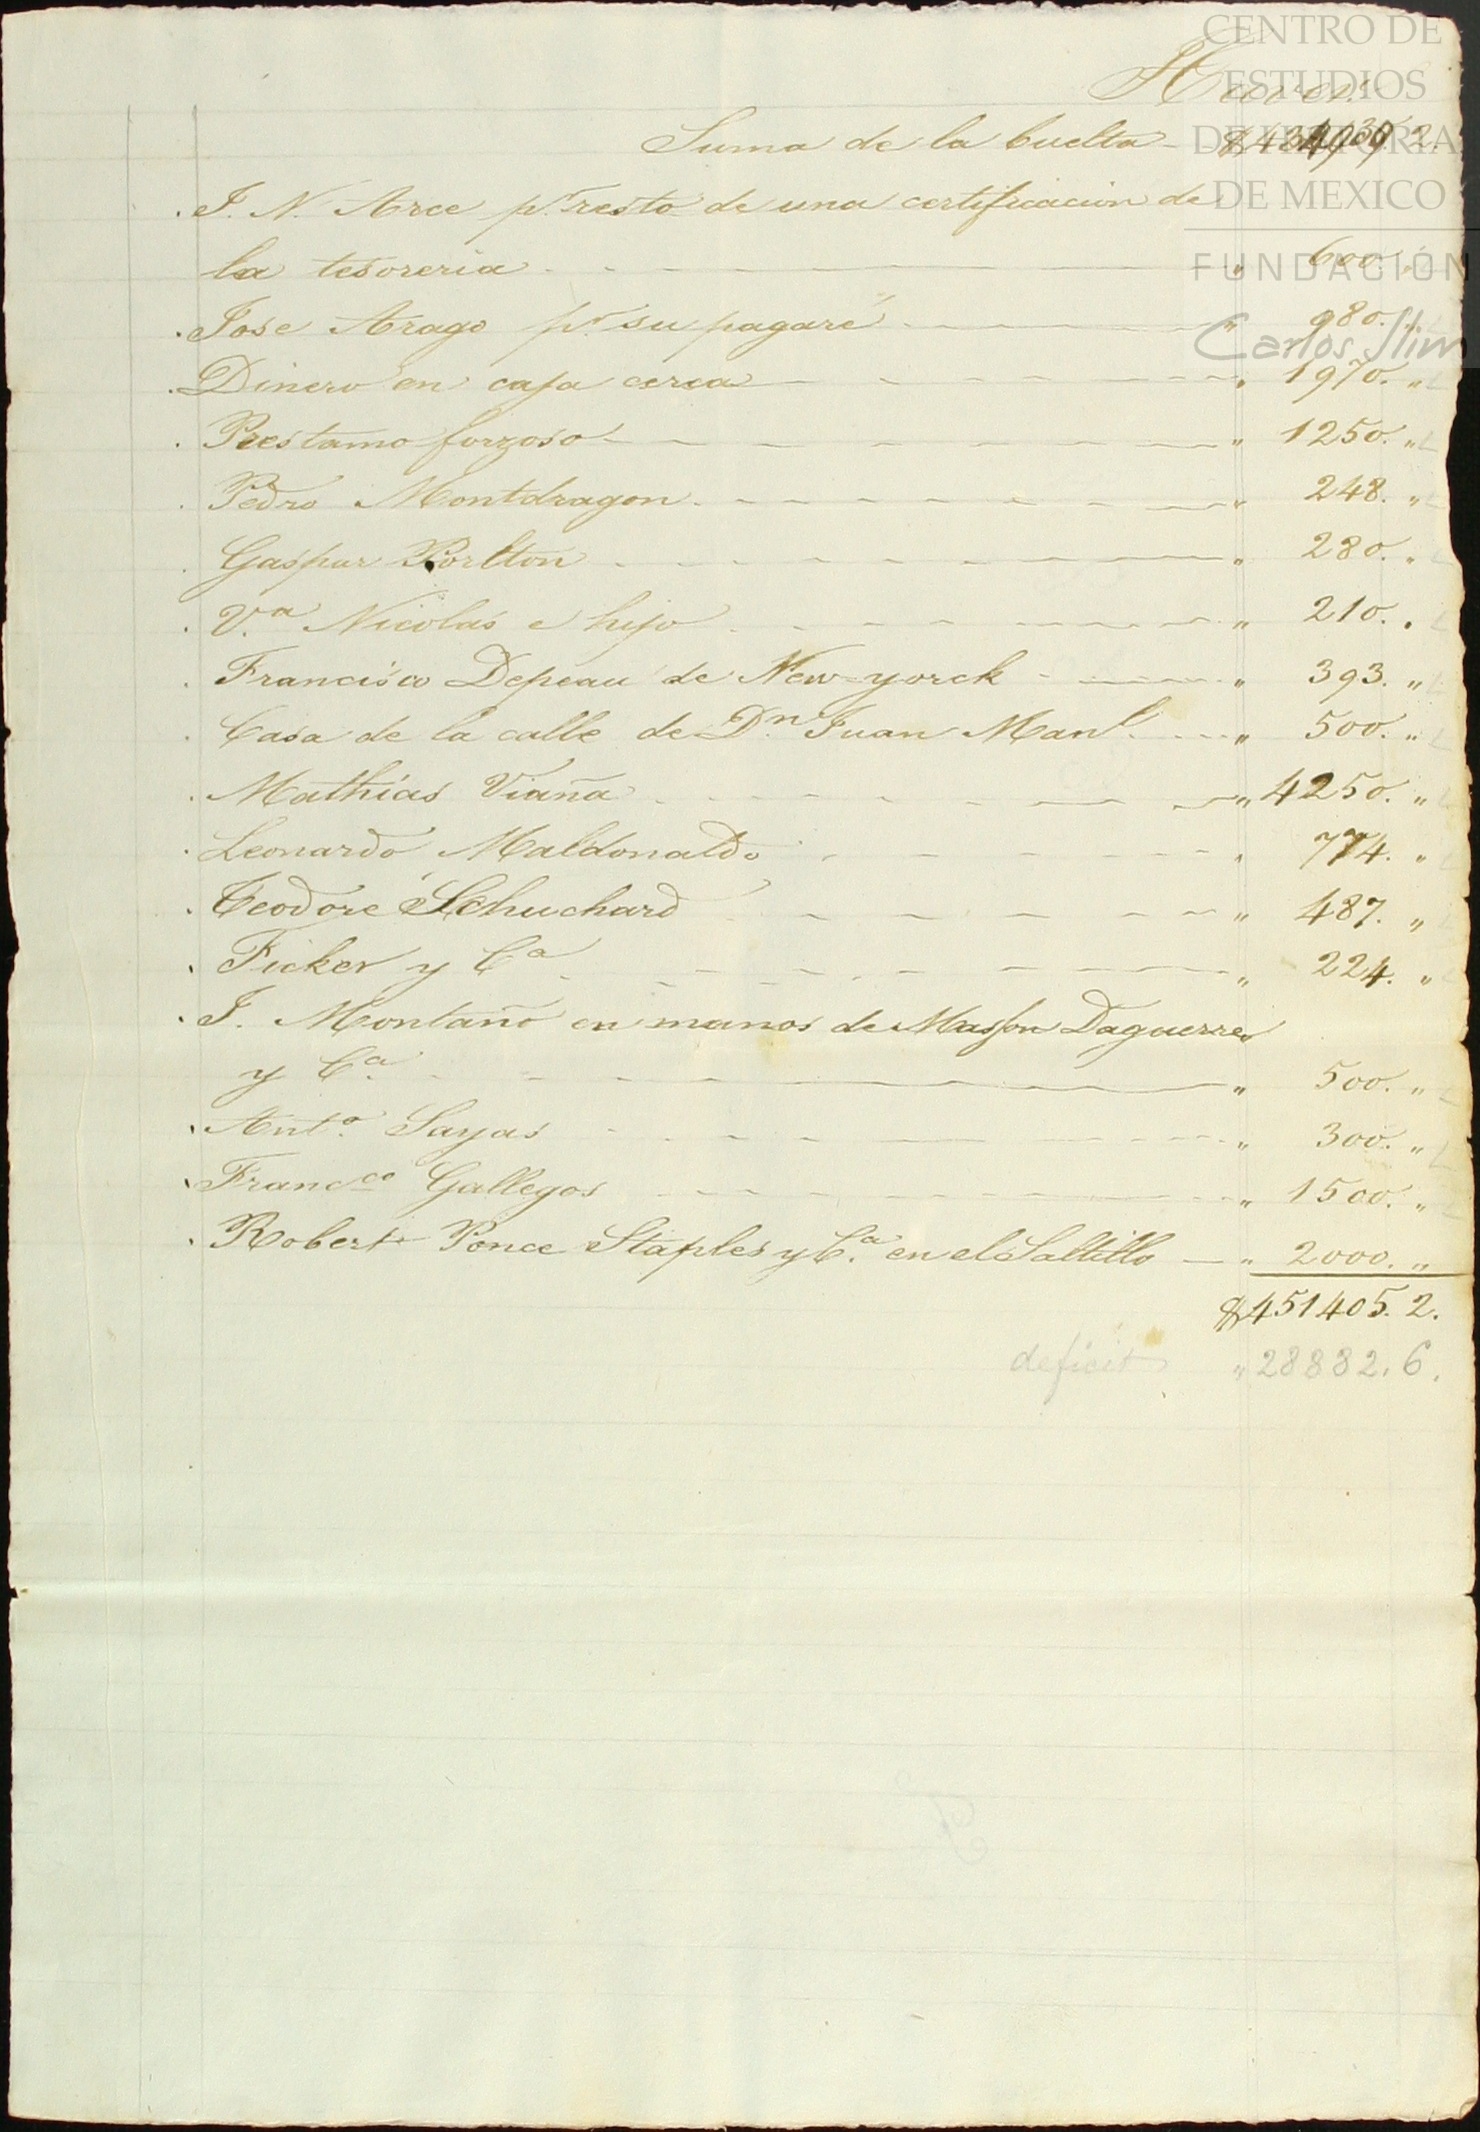 CENTRO DE
ESTUDIOS
DE HISTORIA
DE MEXICO
FUNDACIÓN
Carlos Slim
Haver
Suma de la buelta $434939. 2.
. J. N. Arce pr. resto de una certificacion de
la tesoreria " 600. "
. Jose Arago pr. su pagaré " 980. "
. Dinero en caja cerca " 1970. "
. Prestamo forzoso " 1250. "
. Pedro Montdragon " 248. "
. Gaspar Porlton " 280. "
. V.ª Nicolas e hijo " 210. "
. Francisco Depeau de New-yorck " 393. "
. Casa de la calle de Dn. Juan Manl. " 500. "
. Mathias Viaña " 4250. "
. Leonardo Maldonaldo " 774. "
. Teodore Schuchard " 487. "
. Ficker y Cª " 224. "
. J. Montaño en manos de Masson Daguerre
y Cª. " 500. "
. Antº. Sayas " 300. "
. Francco Gallegos " 1500. "
. Robert Ponce Staples y Cª. en el Saltillo " 2000. "
$451405. 2.
deficit " 28882. 6.